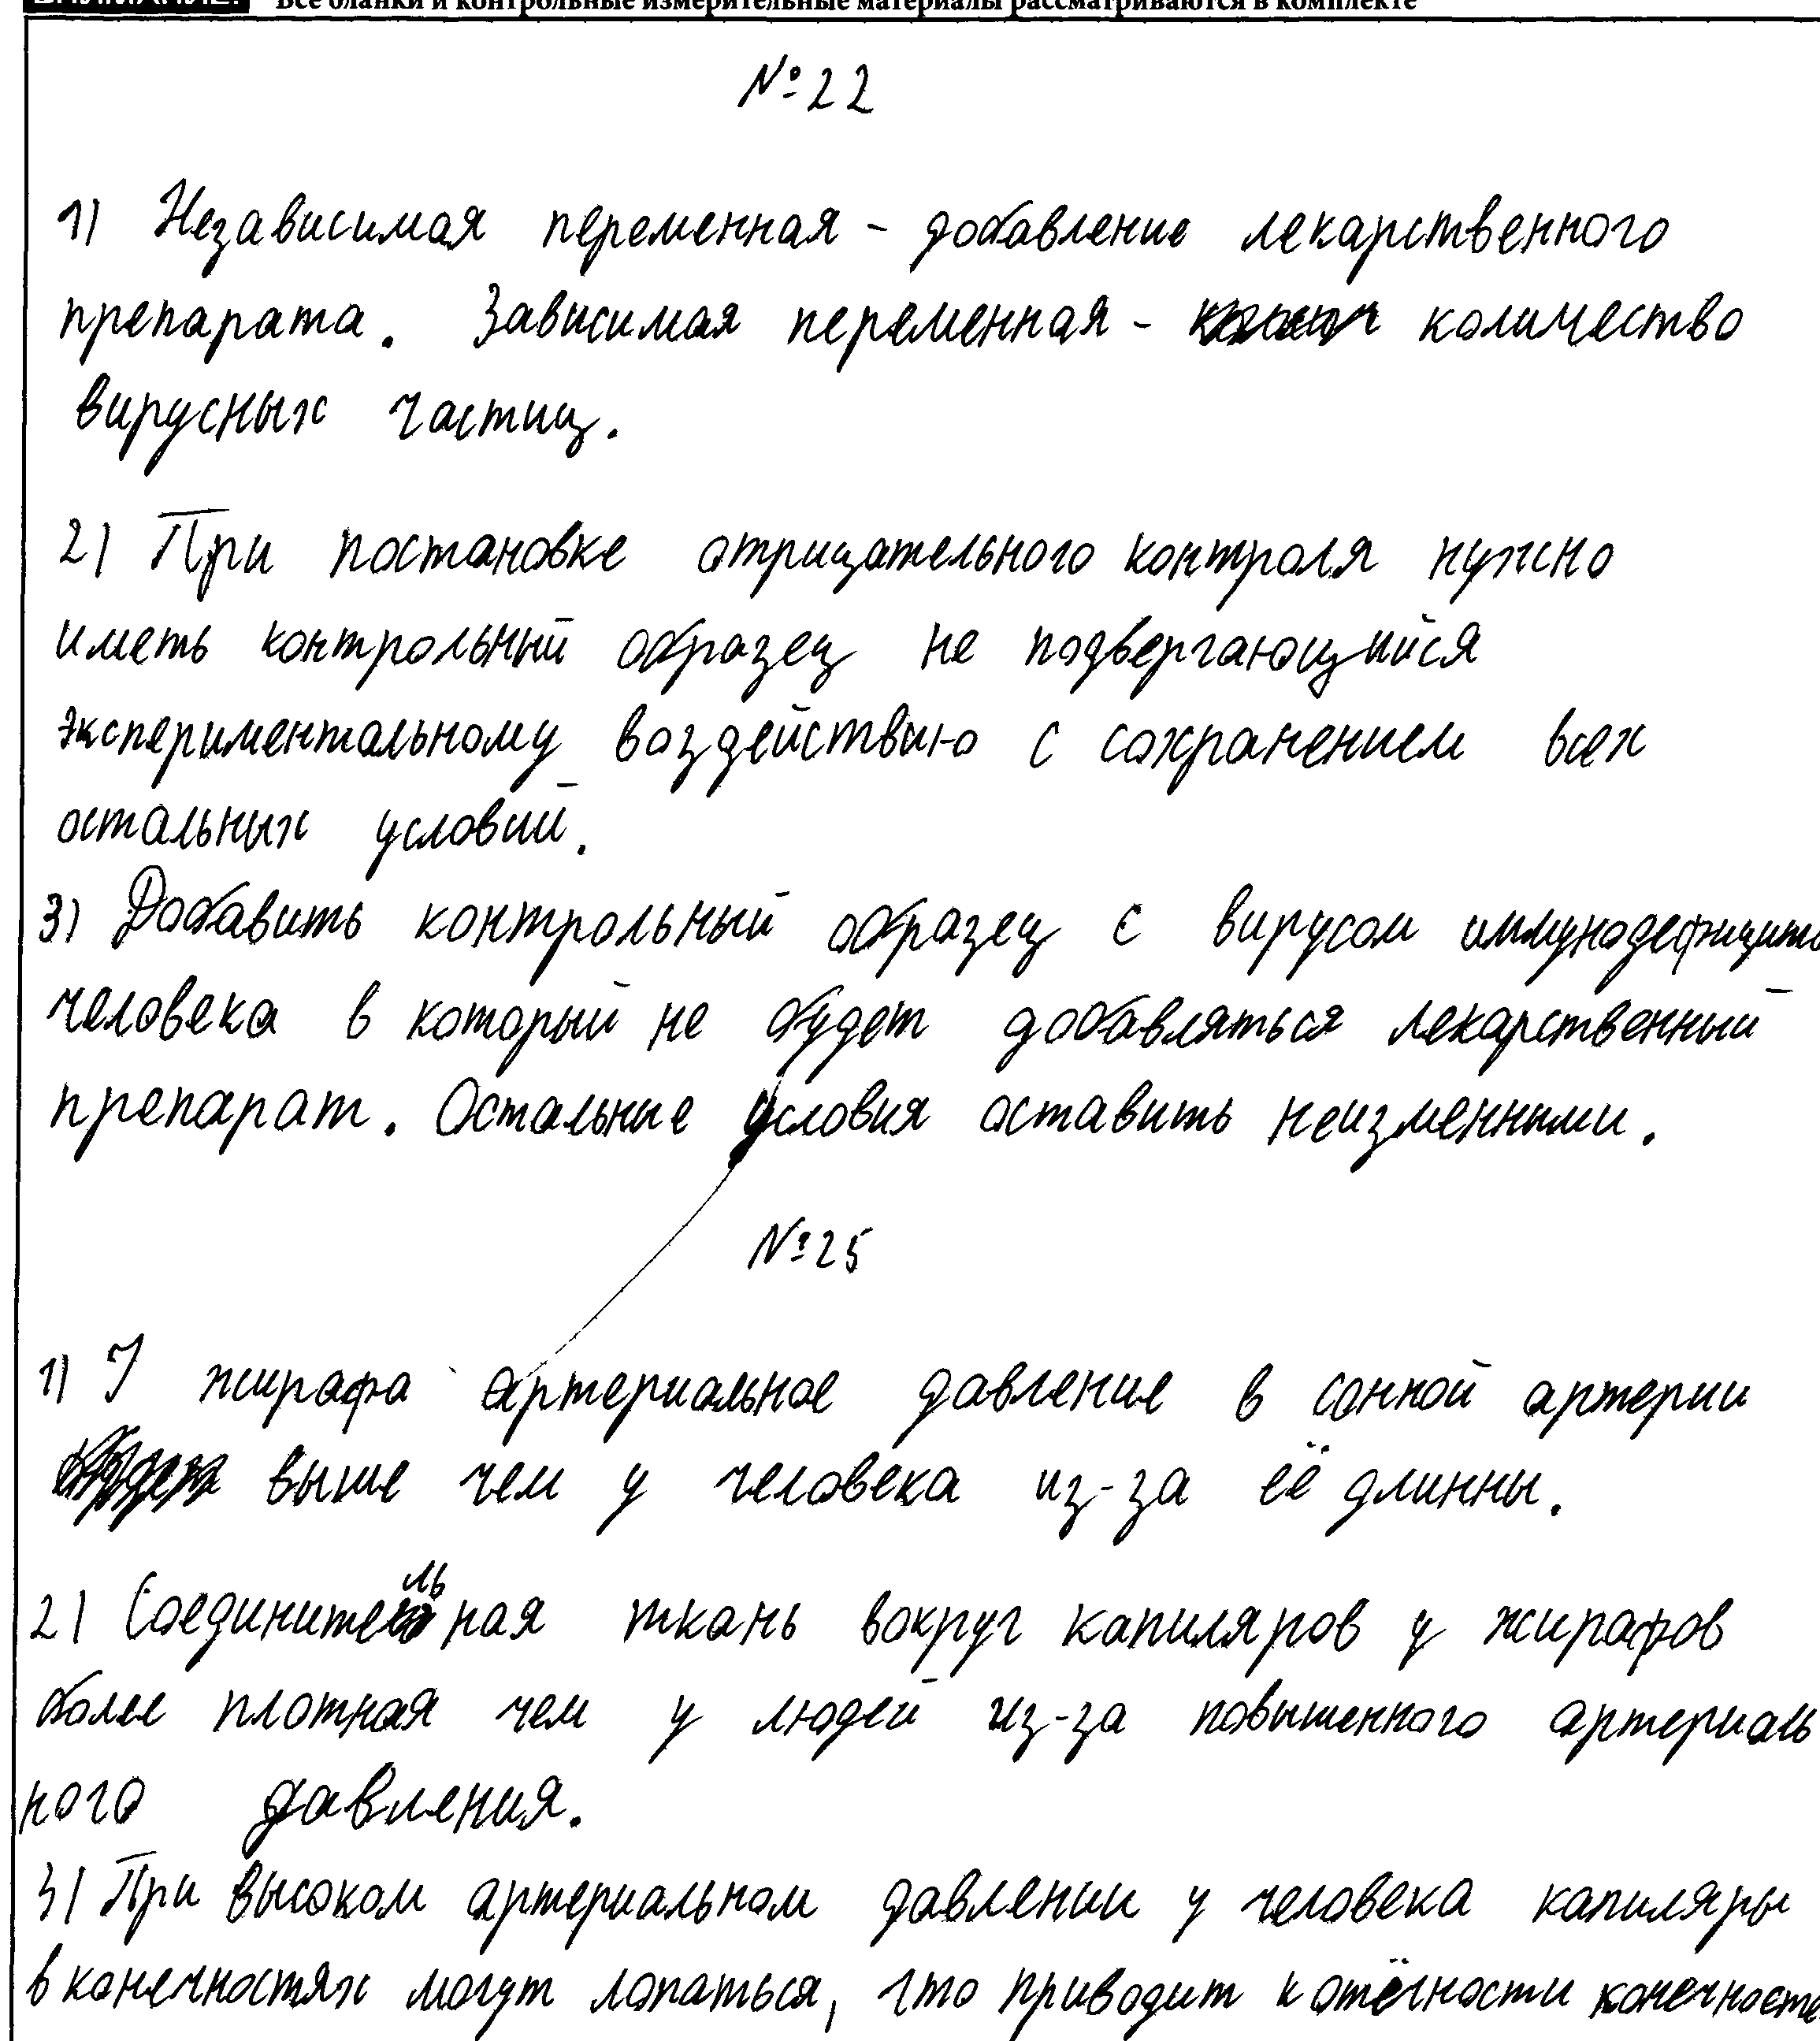 Все бланки и контрольные измерительные материалы рассматриваются в комплекте
№22
1) Независимая переменная - добавление лекарственного
препарата. Зависимая переменная - количество
вирусных частиц.
2) При постановке отрицательного контроля нужно
иметь контрольный образец не подвергающийся
экспериментальному воздействию с сохранением всех
остальных условий.
3) Добавить контрольный образец с вирусом иммунодефицита
человека в который не будет добавляться лекарственный
препарат. Остальные условия оставить неизменными.
№25
1) У жирафа артериальное давление в сонной артерии
выше чем у человека из-за её длинны.
2) Соединительная ткань вокруг капиляров у жирафов
более плотная чем у людей из-за повышенного артериаль
ного давления.
3) При высоком артериальном давлении у человека капиляры
в конечностях могут лопаться, что приводит к отёчности конечносте